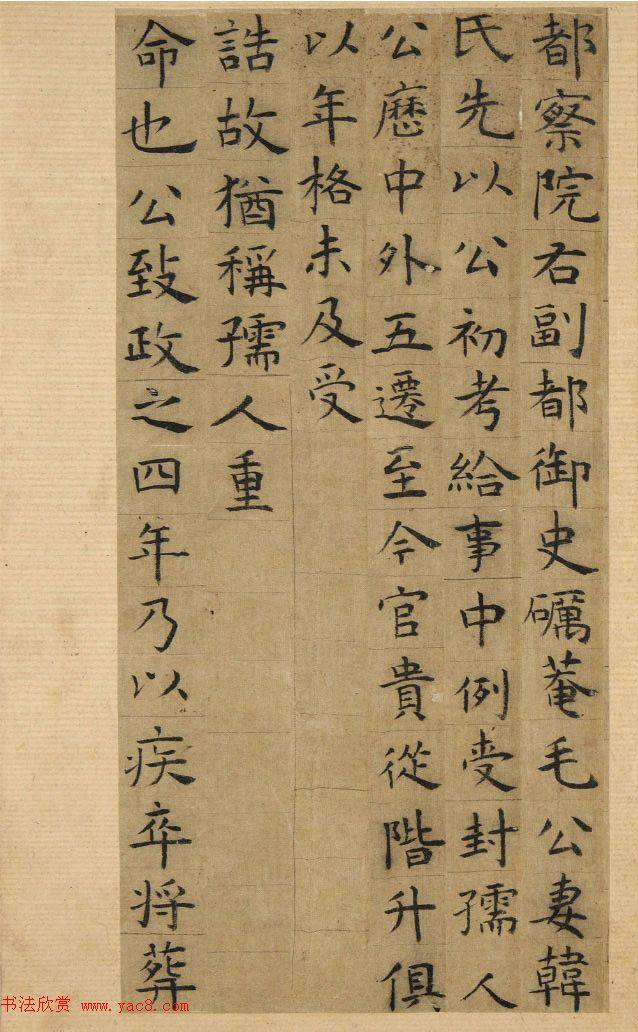 都察院右副都御史礪菴毛公妻韓
氏先以公初考給事中例受封孺人
公歷中外五遷至今官貴從階升俱
以年格未及受
誥故猶稱孺人重
命也公致政之四年乃以疾卒将葬
书法欣赏 www.yac8.com